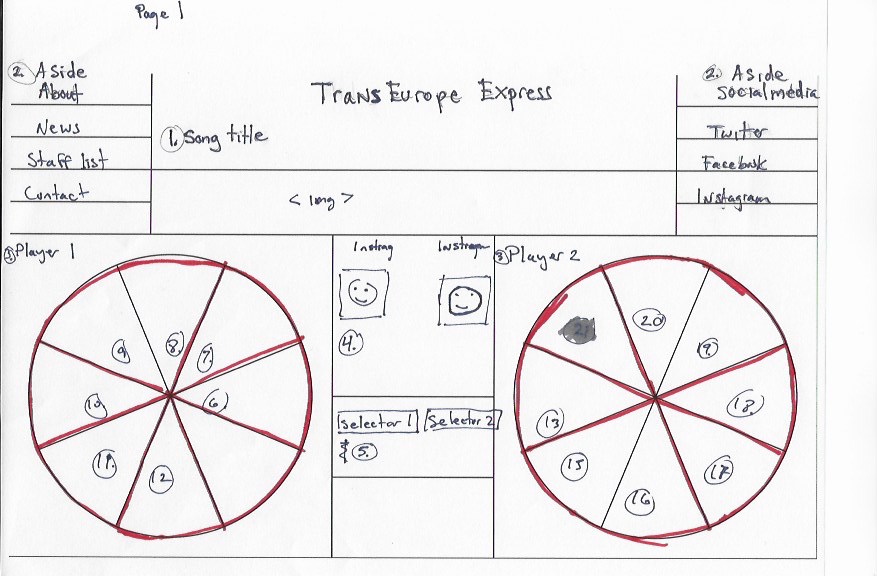 Page 1
2. Aside
About
News
Staff list
Contact
Trans Europe Express
1. Song title
< long >
2. Aside
Social media
Twitter
Facebook
Instagram
3 Player 1
9
8.
7.
6
10
11.
12
Instrag
Instragm
4.
Selector 1
Selector 2
5.
3 Player 2
21
20
19
18.
13
15
16
17